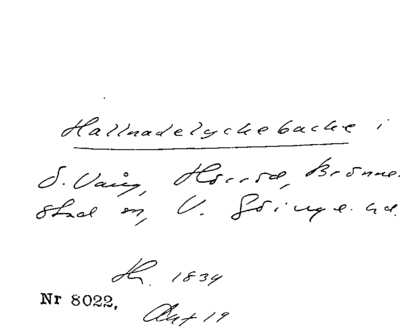 Hallnadelyckebacke i
Ö. Vång, Hörröd, Brönne-
stad sn, V. Göinge hd.
Kr. 1834
Nr 8022, Akt 19